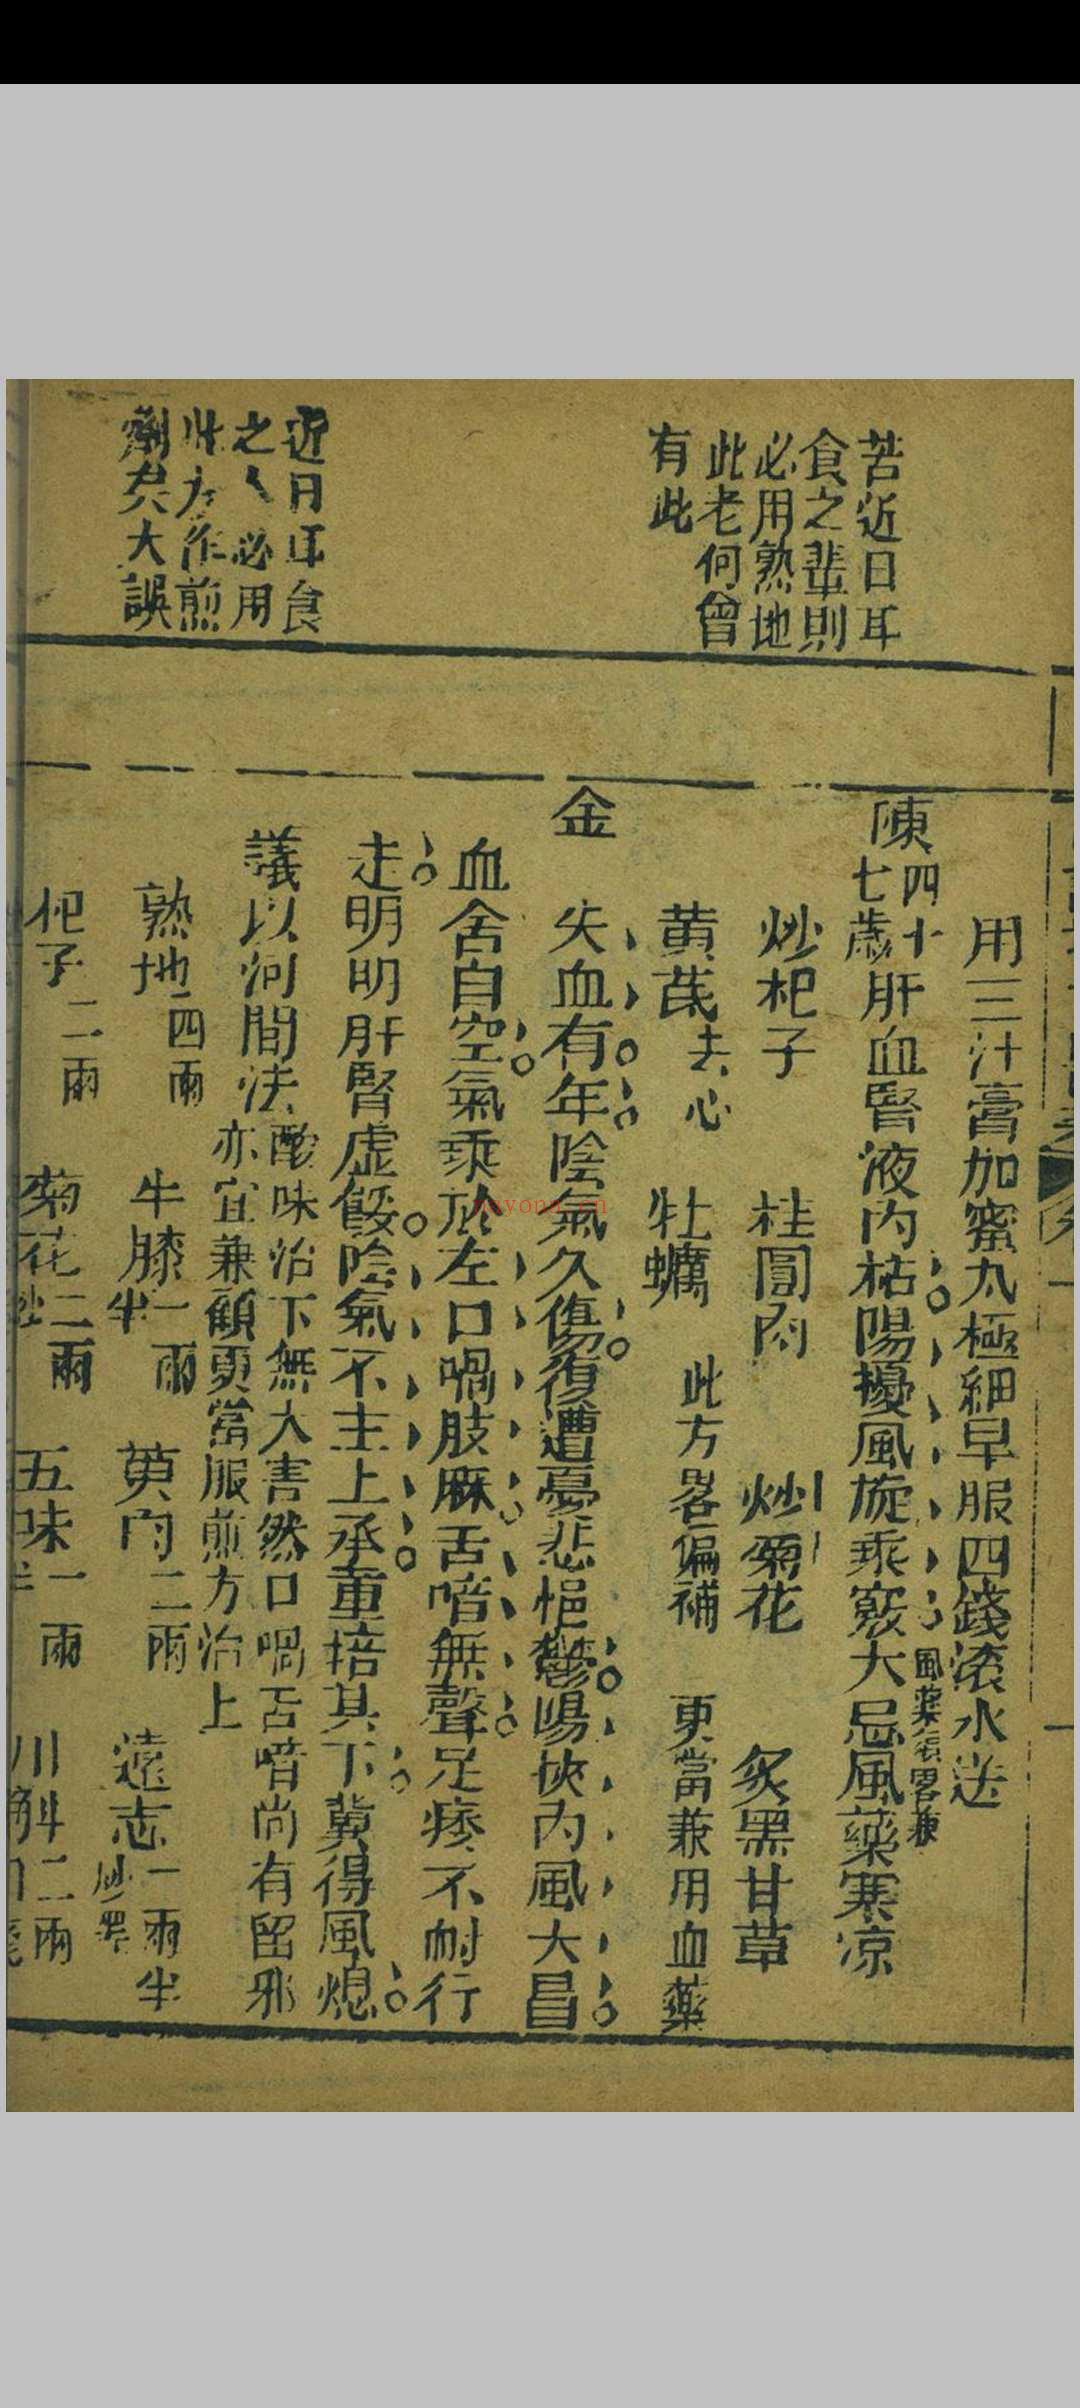 苦近日耳
食之輩則
必用熟地
此老何曾
有此
近日耳食
之人必用
此方作煎
劑大誤
用三汁膏加蜜丸極細早服四錢滾水送
陳四十七歲肝血腎液內枯陽擾風旋乘竅大忌風藥寒涼
風藥須畧兼
炒杞子 桂圓肉 炒菊花 炙黑甘草
黃芪去心 牡蠣 此方畧偏補 更當兼用血藥
金
失血有年陰氣久傷復遭憂悲悒鬱陽挾內風大冒
血舍自空氣乘於左口喎肢麻舌喑無聲足痿不耐行
走明明肝腎虛餒陰氣不主上承重培其下冀得風熄
議以河間法
酸味治下無大害然口喎舌喑尚有留邪
亦宜兼顧更當服煎方治上
熟地四兩 牛膝一兩半 萸肉二兩 遠志一兩半炒黑
杞子二兩 菊花二兩炒 五味一兩半 川斛二兩
mayona.cn